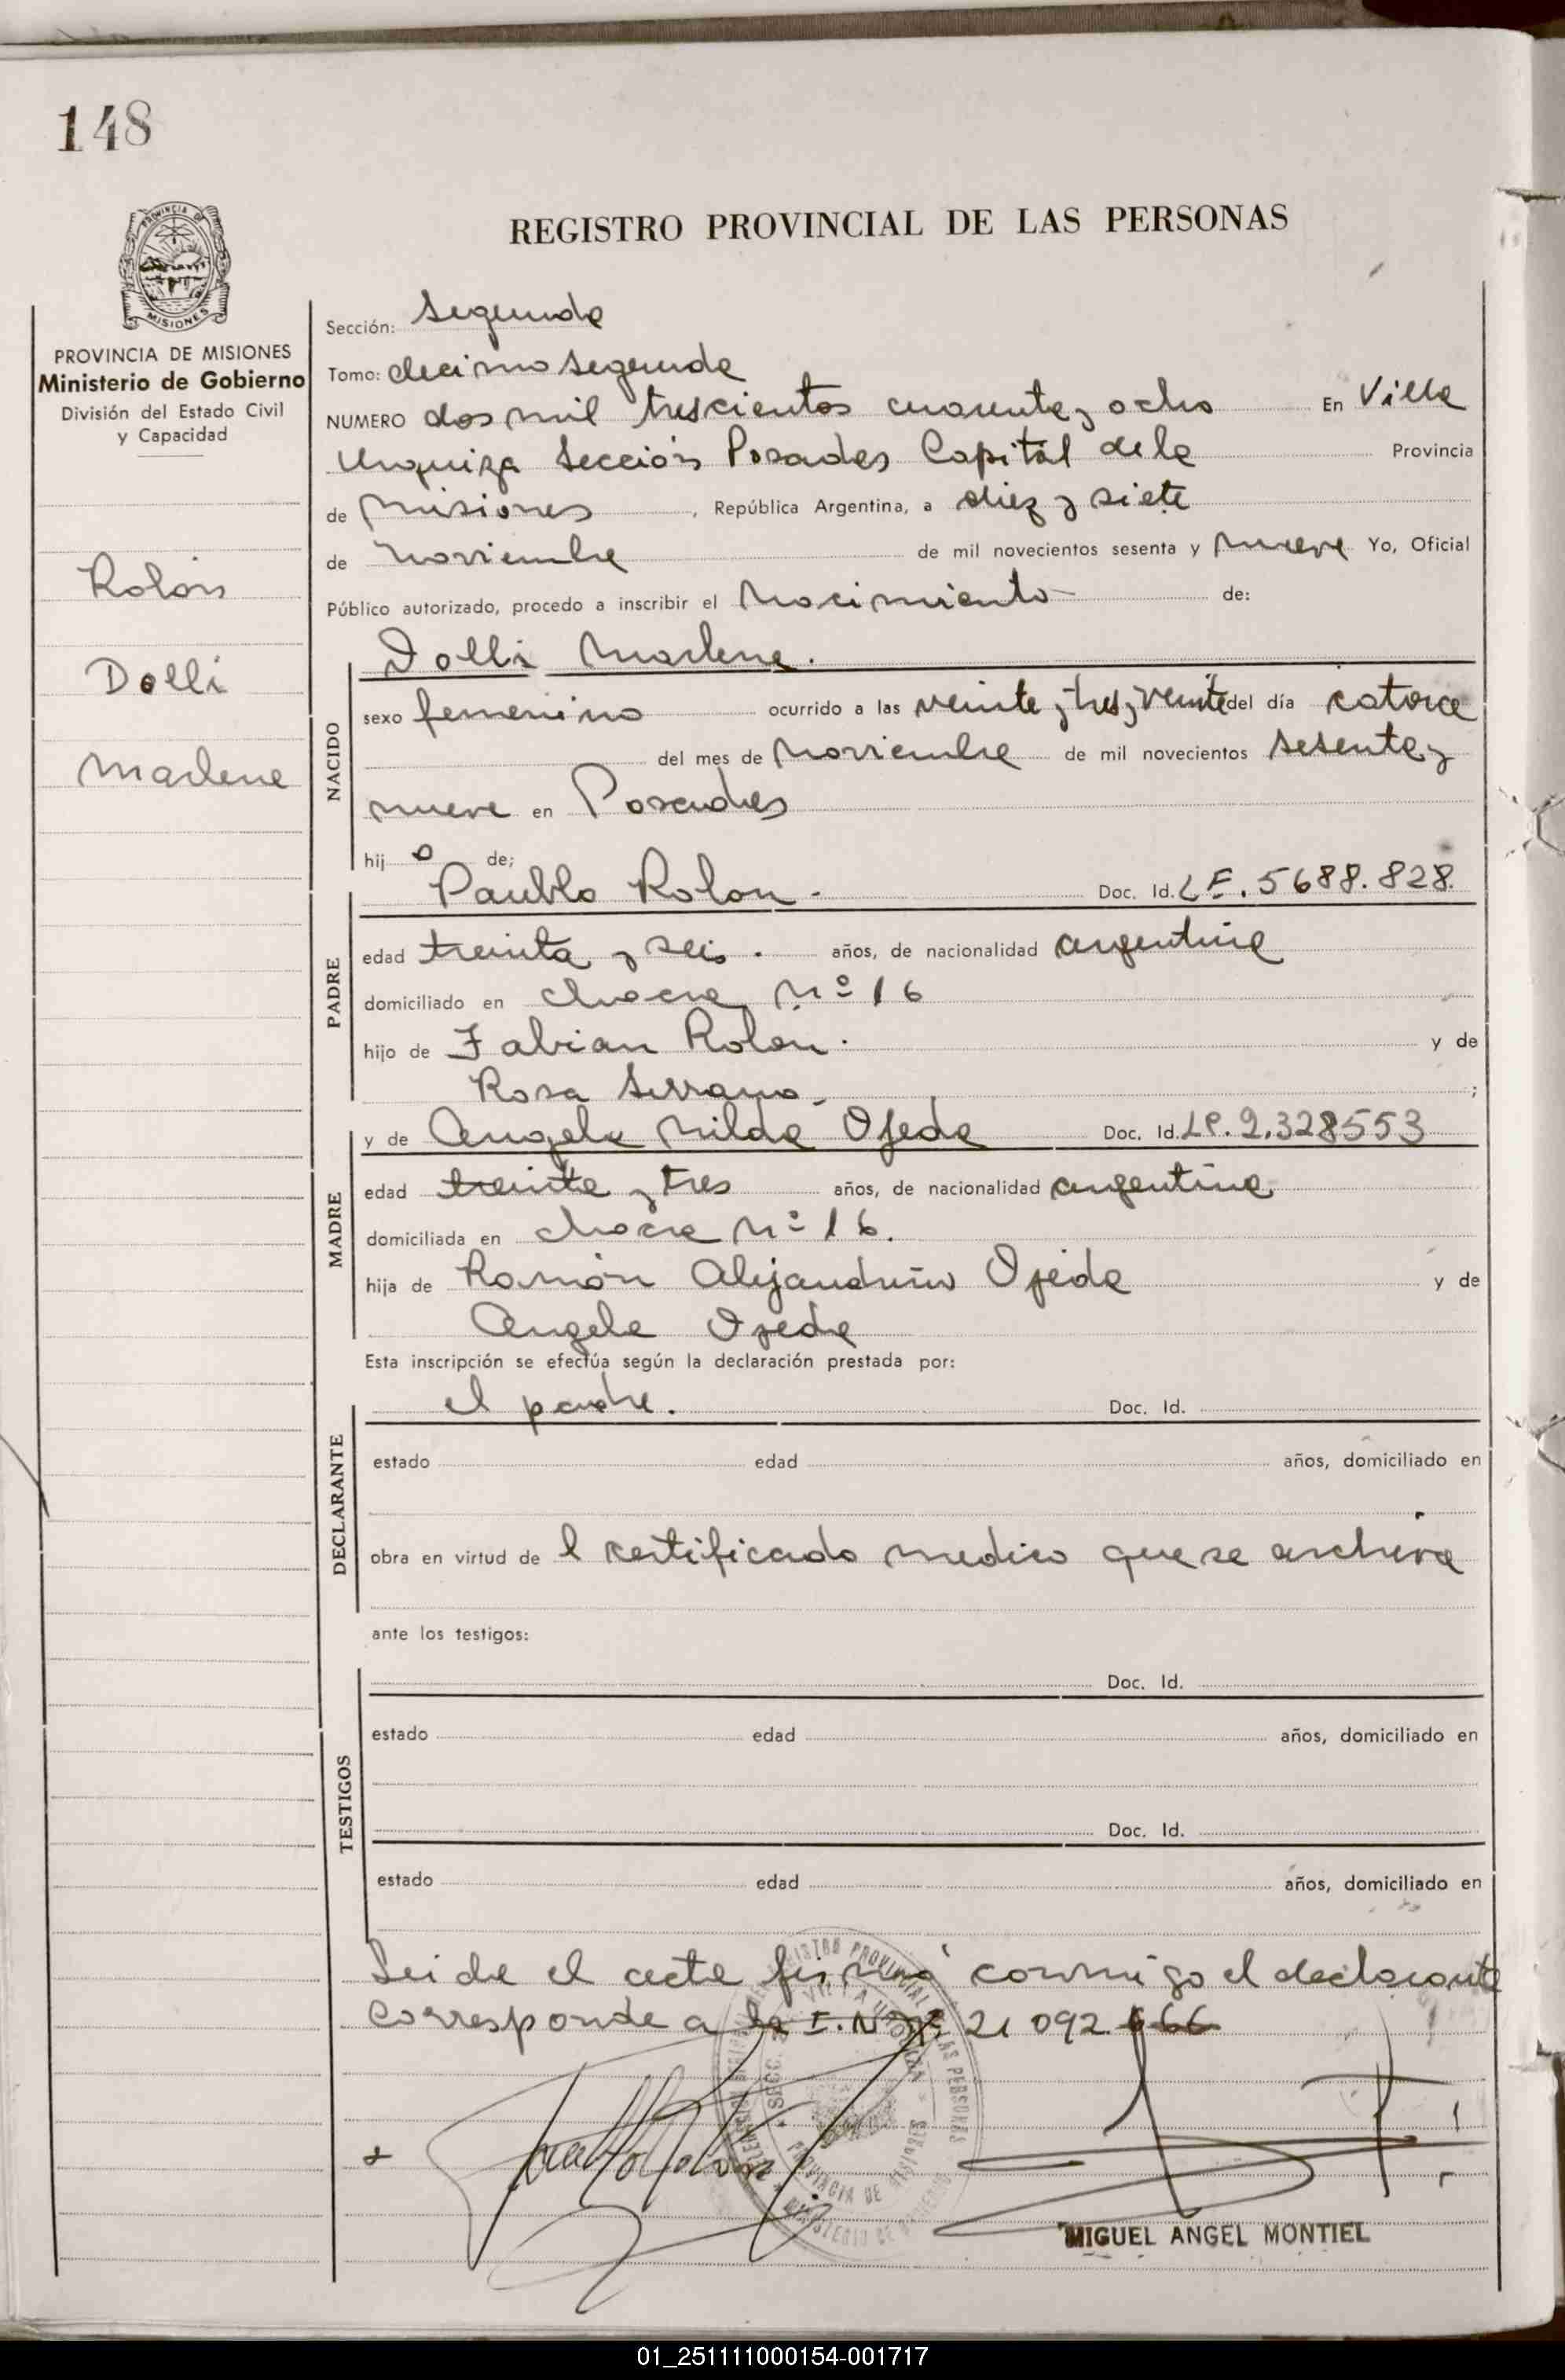 148
REGISTRO PROVINCIAL DE LAS PERSONAS
PROVINCIA DE MISIONES
MISIONES
PROVINCIA DE MISIONES
Ministerio de Gobierno
División del Estado Civil
y Capacidad
Rolón
Dolli
Marlene
Sección: Segunda
Tomo: decimo segunda
NUMERO dos mil trescientos cuarenta y ocho En Villa
Urquiza Sección Posadas Capital de la Provincia
de Misiones, República Argentina, a diez y siete
de noviembre de mil novecientos sesenta y nueve Yo, Oficial
Público autorizado, procedo a inscribir el Nacimiento de:
Dolli Marlene.
NACIDO
sexo femenino ocurrido a las veinte y tres y veinte del día catorce
del mes de Noviembre de mil novecientos sesenta y
nueve en Posadas
hij a de;
Paublo Rolon - Doc. Id. LE. 5688.828.
PADRE
edad treinta y seis. años, de nacionalidad argentina
domiciliado en chacra Nº 16
hijo de Fabian Rolon. y de
Rosa Serrano - ;
y de Angela Nilda Ojeda Doc. Id. LC. 2.328553
MADRE
edad treinta y tres años, de nacionalidad argentina
domiciliada en chacra Nº 16.
hija de Ramón Alejandrino Ojeda y de
Angela Ojeda
Esta inscripción se efectúa según la declaración prestada por:
el padre. Doc. Id.
DECLARANTE
estado edad años, domiciliado en
obra en virtud de l certificado medico que se archiva
ante los testigos:
Doc. Id.
TESTIGOS
estado edad años, domiciliado en
Doc. Id.
estado edad años, domiciliado en
Leida el acta firmó conmigo el declarante
corresponde a la I. Nº 21 092.666
REGISTRO PROVINCIAL DE LAS PERSONAS
PROVINCIA DE MISIONES
MINISTERIO DE GOBIERNO
MIGUEL ANGEL MONTIEL
01_251111000154-001717